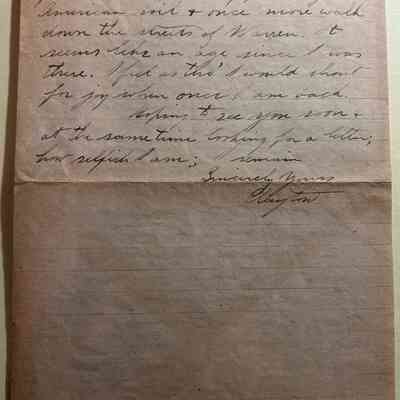 American soil & once more walk
down the streets of Warren. It
seems like an age since I was
there. I feel as tho' I would shout
for joy when once I am back.
Hoping to see you soon &
at the same time looking for a letter;
how selfish I am; I remain
Sincerely Yours
Clayton